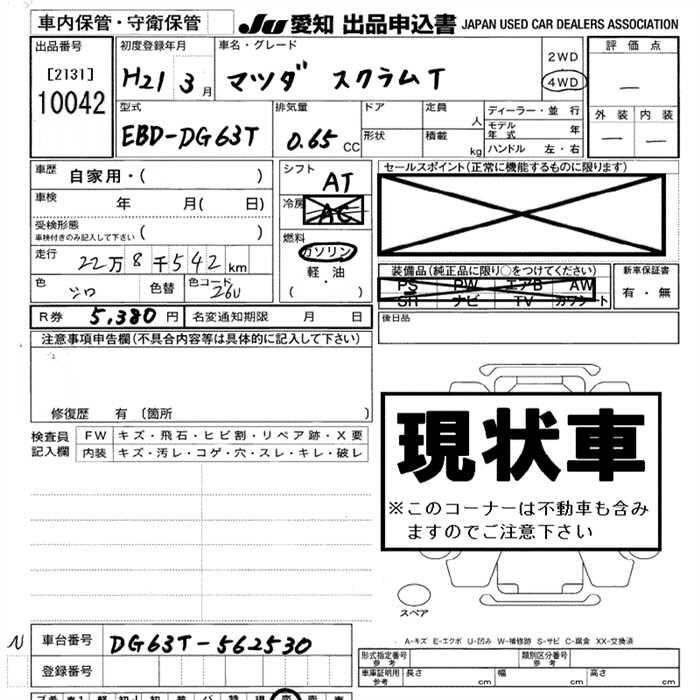 車内保管・守衛保管 JU 愛知 出品申込書 JAPAN USED CAR DEALERS ASSOCIATION
出品番号 初度登録年月 車名・グレード 2WD 評価点
[2131] H21 3月 マツダ スクラムT 4WD —
10042 型式 排気量 ドア 定員 人 ディーラー・並行 外装 内装
EBD-DG63T 0.65 CC 形状 積載 kg モデル年式 年 — —
ハンドル 左・右
車歴 自家用・( ) シフト AT セールスポイント(正常に機能するものに限ります)
車検 年 月( 日) 冷房 AC
受検形態 車検付きのみ記入して下さい ( ) 燃料 ガソリン
走行 22万8千542km 軽・油 装備品(純正品に限り○をつけてください) 新車保証書
色 シロ 色替 色コード 26U ( ・ ) PS PW エアB AW 有・無
SR ナビ TV カワシート
R券 5,380円 名変通知期限 月 日 後日品
注意事項申告欄(不具合内容等は具体的に記入して下さい)
修復歴 有 〔箇所 〕
検査員 FW キズ・飛石・ヒビ割・リペア跡・X要
記入欄 内装 キズ・汚レ・コゲ・穴・スレ・キレ・破レ
現状車
※このコーナーは不動車も含み
ますのでご注意下さい
スペア
A-キズ E-エクボ U-凹み W-補修跡 S-サビ C-腐食 XX-交換済
N 車台番号 DG63T-562530 形式指定番号 参考 類別区分番号 参考
登録番号 車庫証明用 参考 長さ cm 幅 cm 高さ cm